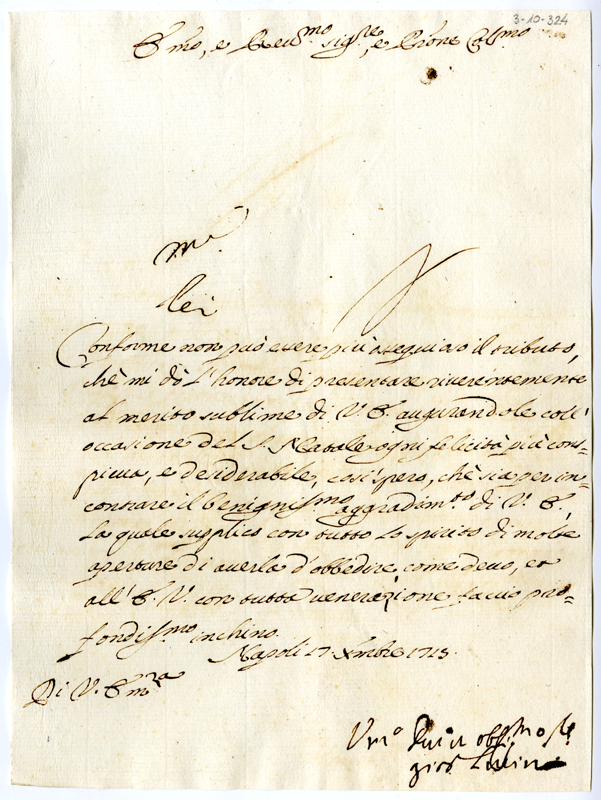 3-10-324
Emo, e Reu.mo sig.re, e Prone Col.mo
Conforme non può essere più ossequiaso il tributo,
chè mi dò l'honore di presentare riuerentemente
al merito sublime di V. E. augurandole coll'
occasione del S. Natale ogni felicità più cons=
picua, e desiderabile, così spero, chè sia per in=
contrare il benignis.mo aggradim.to di V. E.,
la quale supplico con tutto lo spirito di molte
aperture di auerla d'obbedire come deuo, et
all' E. V. con tutta venerazione faccio pro=
fondis.mo inchino.
Napoli 17 Xmbre 1713.
Di V. Em.ra
Vmo obl.mo